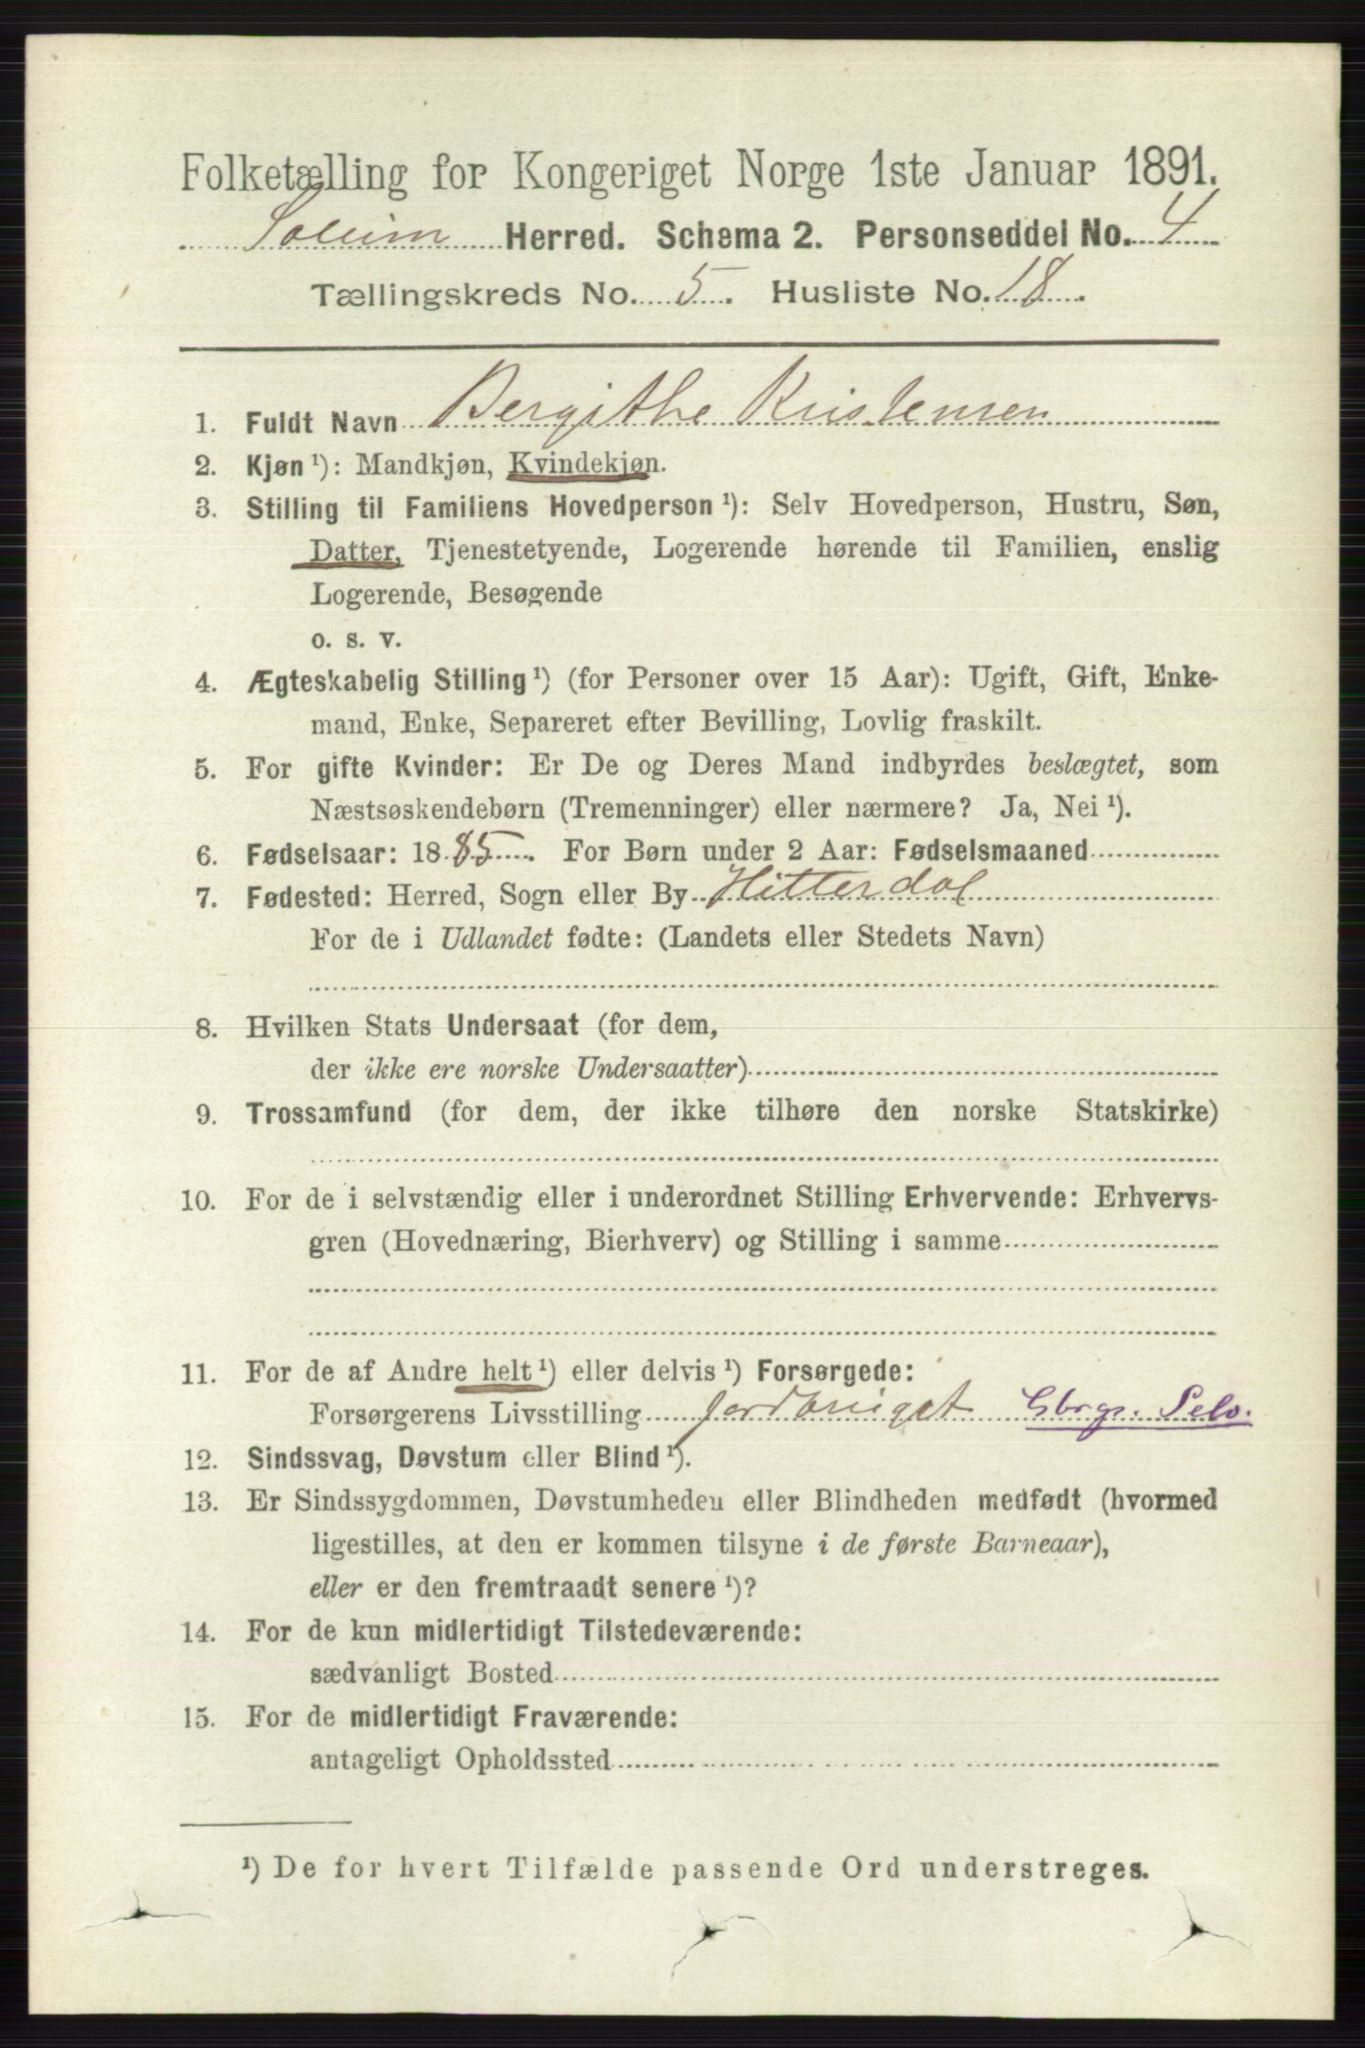 Folketælling for Kongeriget Norge 1ste Januar 1891.
Solum Herred. Schema 2. Personseddel No. 4
Tællingskreds No. 5. Husliste No. 18.
1. Fuldt Navn Bergithe Kristensen
2. Kjøn ¹): Mandkjøn, Kvindekjøn.
3. Stilling til Familiens Hovedperson ¹): Selv Hovedperson, Hustru, Søn,
Datter, Tjenestetyende, Logerende hørende til Familien, enslig
Logerende, Besøgende
o. s. v.
4. Ægteskabelig Stilling ¹) (for Personer over 15 Aar): Ugift, Gift, Enke-
mand, Enke, Separeret efter Bevilling, Lovlig fraskilt.
5. For gifte Kvinder: Er De og Deres Mand indbyrdes beslægtet, som
Næstsøskendebørn (Tremenninger) eller nærmere? Ja, Nei ¹).
6. Fødselsaar: 1885. For Børn under 2 Aar: Fødselsmaaned
7. Fødested: Herred, Sogn eller By Hitterdal
For de i Udlandet fødte: (Landets eller Stedets Navn)
8. Hvilken Stats Undersaat (for dem,
der ikke ere norske Undersaatter)
9. Trossamfund (for dem, der ikke tilhøre den norske Statskirke)
10. For de i selvstændig eller i underordnet Stilling Erhvervende: Erhvervs-
gren (Hovednæring, Bierhverv) og Stilling i samme
11. For de af Andre helt ¹) eller delvis ¹) Forsørgede:
Forsørgerens Livsstilling Gbrgr. Selv.
12. Sindssvag, Døvstum eller Blind ¹).
13. Er Sindssygdommen, Døvstumheden eller Blindheden medfødt (hvormed
ligestilles, at den er kommen tilsyne i de første Barneaar),
eller er den fremtraadt senere ¹)?
14. For de kun midlertidigt Tilstedeværende:
sædvanligt Bosted
15. For de midlertidigt Fraværende:
antageligt Opholdssted
¹) De for hvert Tilfælde passende Ord understreges.